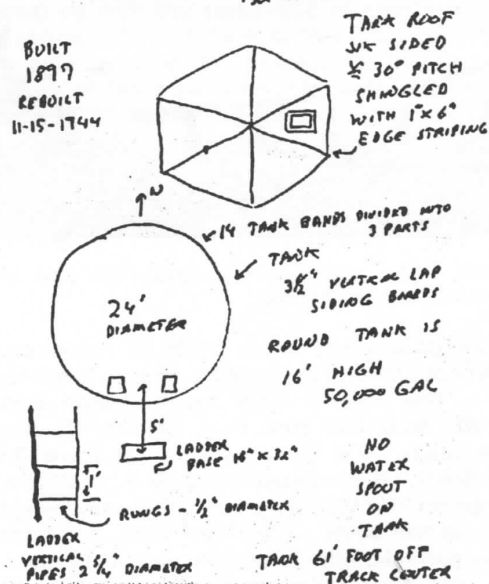 BUILT
1897
REBUILT
11-15-1944
TANK ROOF
SIX SIDED
30° PITCH
SHINGLED
WITH 1"x6"
EDGE STRIPING
N
14 TANK BANDS DIVIDED INTO
3 PARTS
TANK
3 1/2" VERTICAL LAP
SIDING BOARDS
24'
DIAMETER
ROUND TANK IS
16' HIGH
50,000 GAL
5'
LADDER
BASE 18" x 32"
1'
RUNGS - 1/2" DIAMETER
LADDER
VERTICAL
PIPES 2 3/4" DIAMETER
NO
WATER
SPOUT
ON
TANK
TANK 61' FOOT OFF
TRACK CENTER